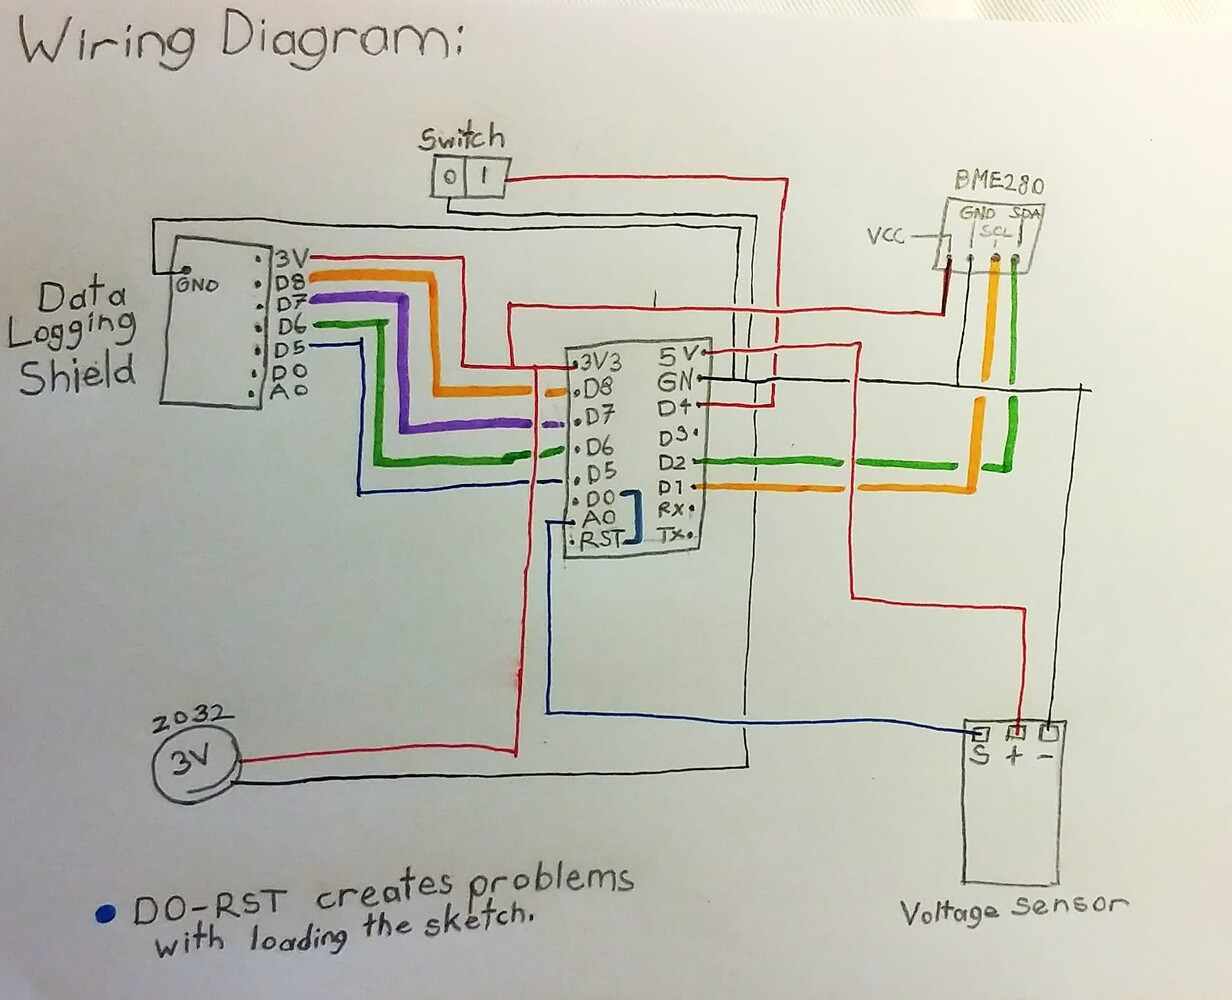 Wiring Diagram:
Switch
0 1
BME280
GND SDA
SCL
VCC
Data
Logging
Shield
GND
3V
D8
D7
D6
D5
D0
A0
3V3
D8
D7
D6
D5
D0
A0
RST
5V
GN
D4
D3
D2
D1
RX
TX
2032
3V
S + -
Voltage Sensor
• DO-RST creates problems
with loading the sketch.